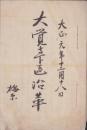 大正元年十二月十八日
大覚寺返沿革